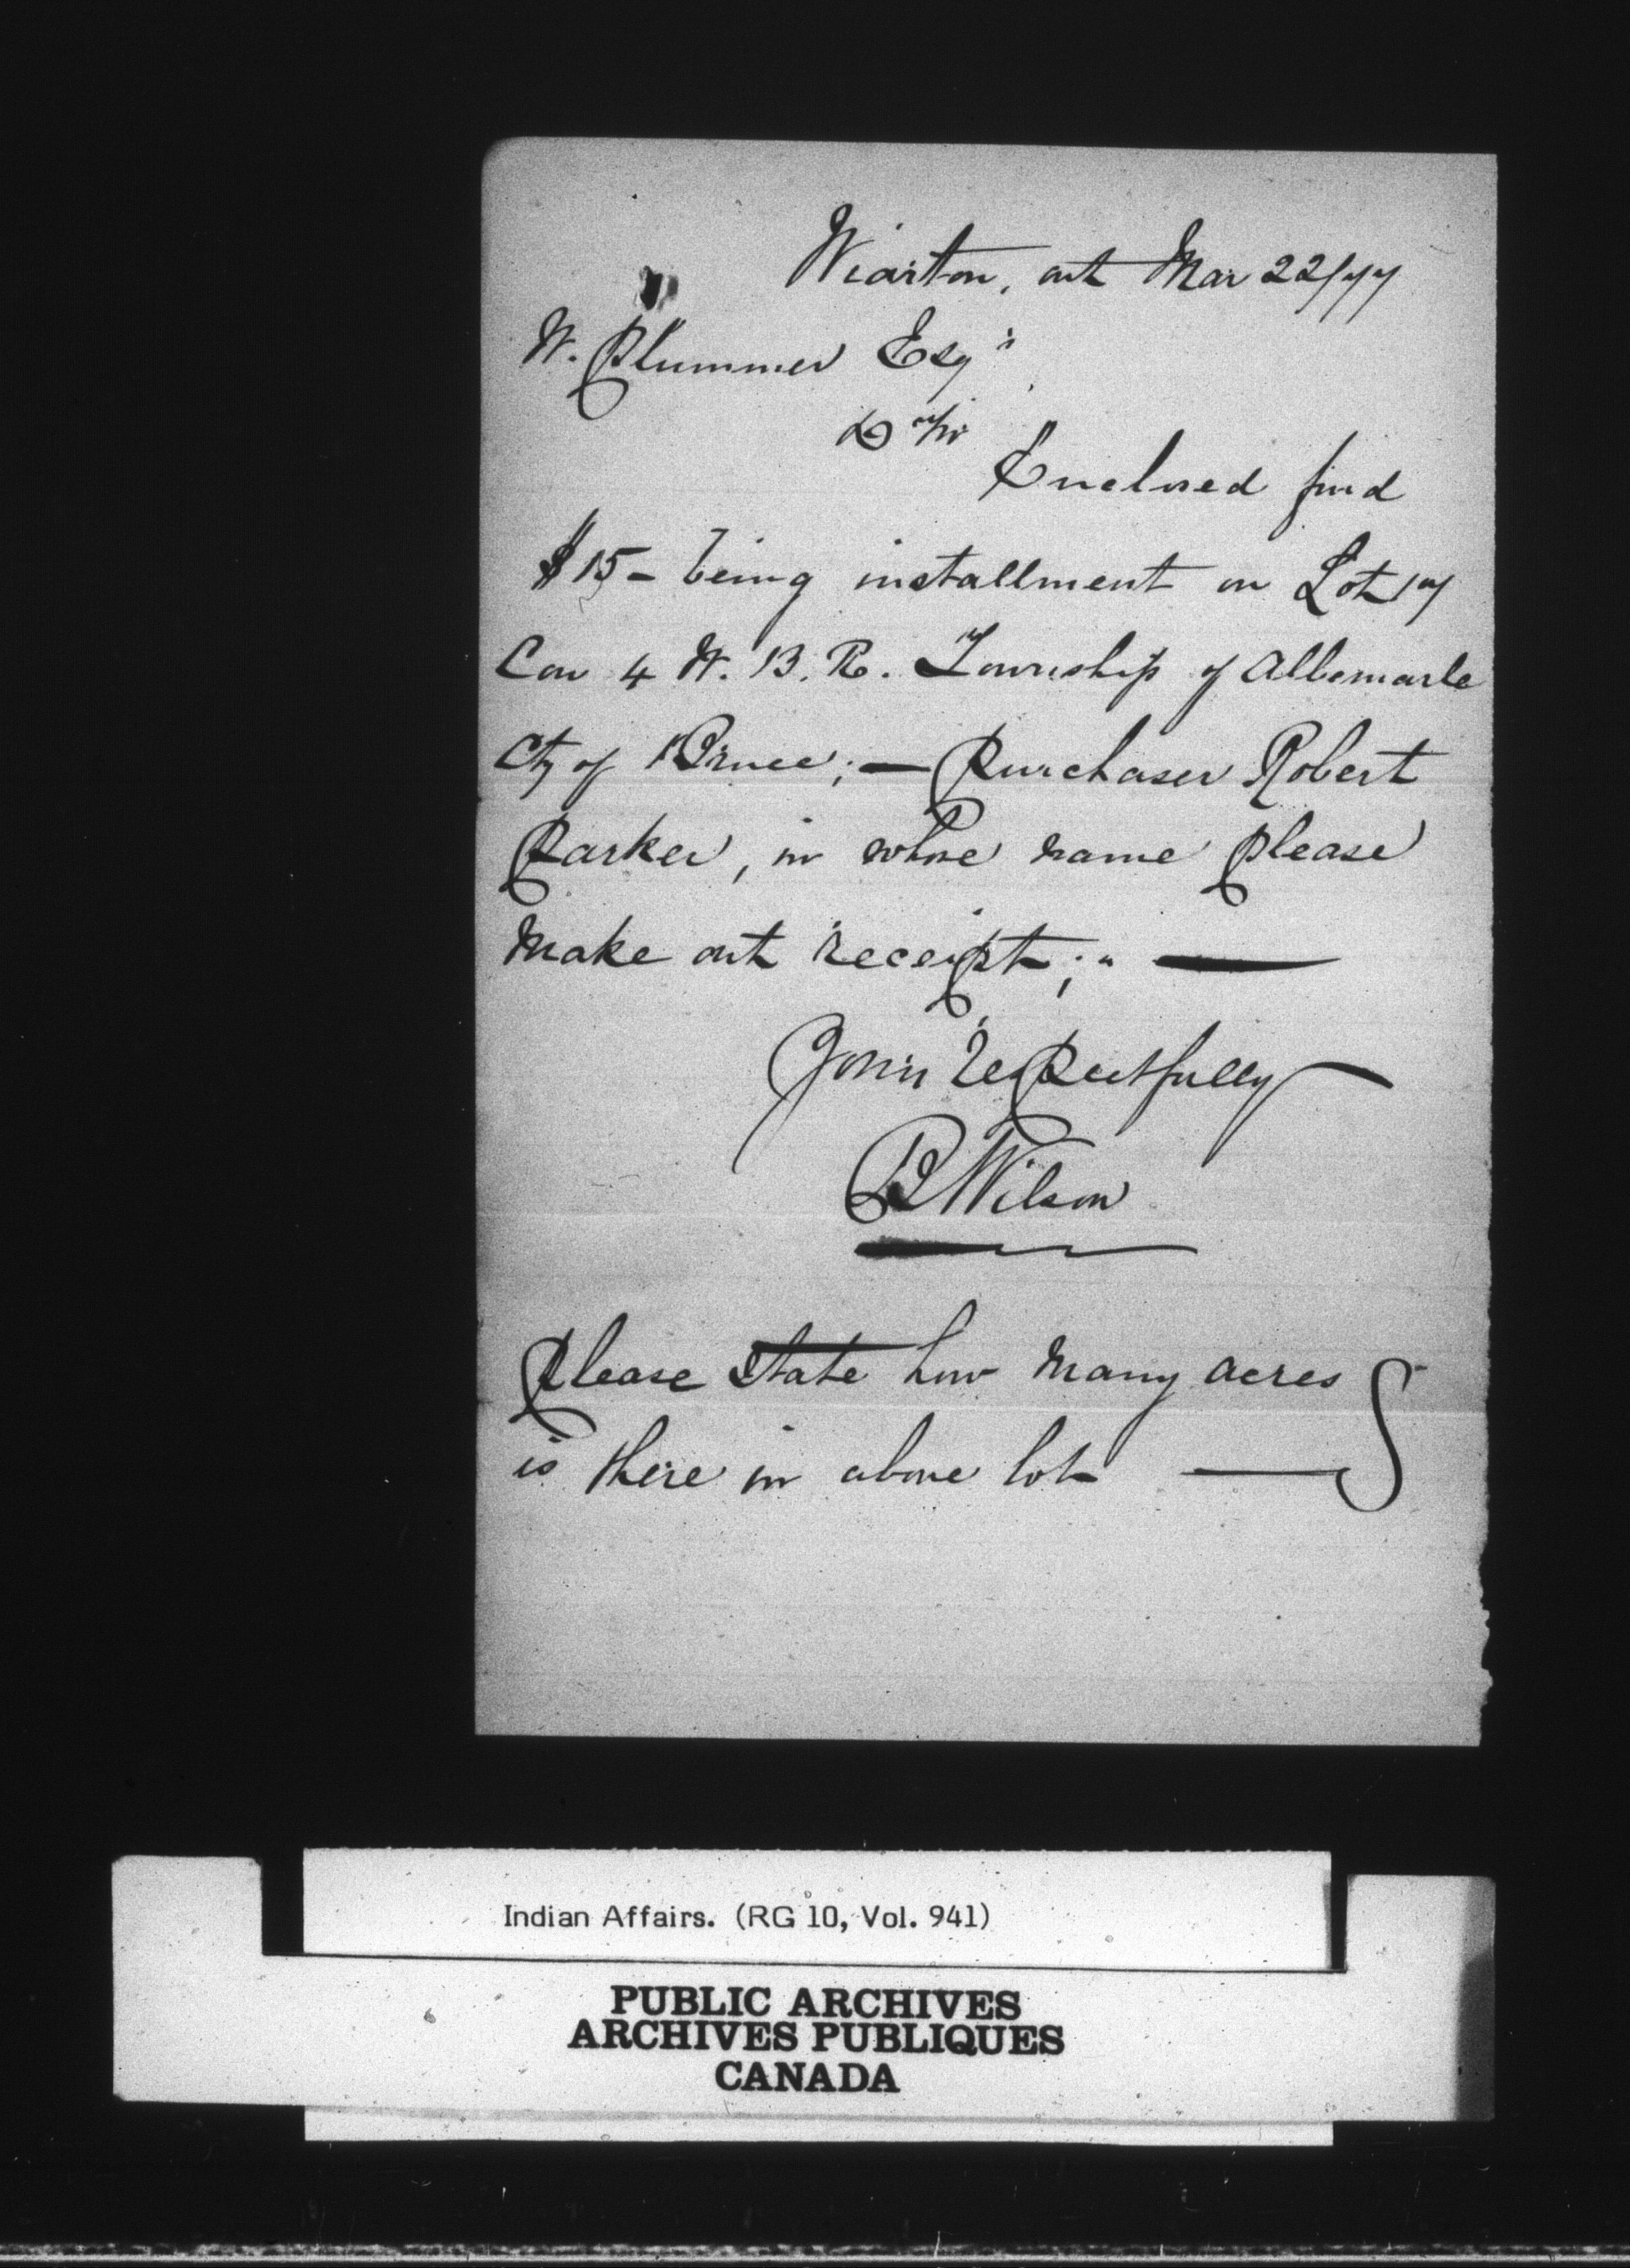 Wiarton, ont Mar 22/77
W. Plummer Esqr
D Sir
Enclosed find
$15 - being installment on Lot 17
Con 4 W. B. R. Township of Albemarle
Cty of Bruce; — Purchaser Robert
Parker, in whose name please
make out receipt; " —
Yours Respectfully
B Wilson
Please state how many acres
is there in above lot —
Indian Affairs. (RG 10, Vol. 941)
PUBLIC ARCHIVES
ARCHIVES PUBLIQUES
CANADA